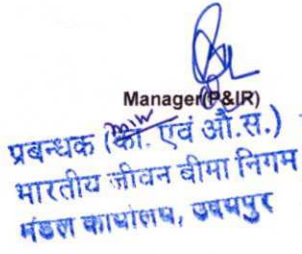 Manager(P&IR)
प्रबन्धक (का. एवं औ.स.)
भारतीय जीवन बीमा निगम
मंडल कार्यालय, उदयपुर